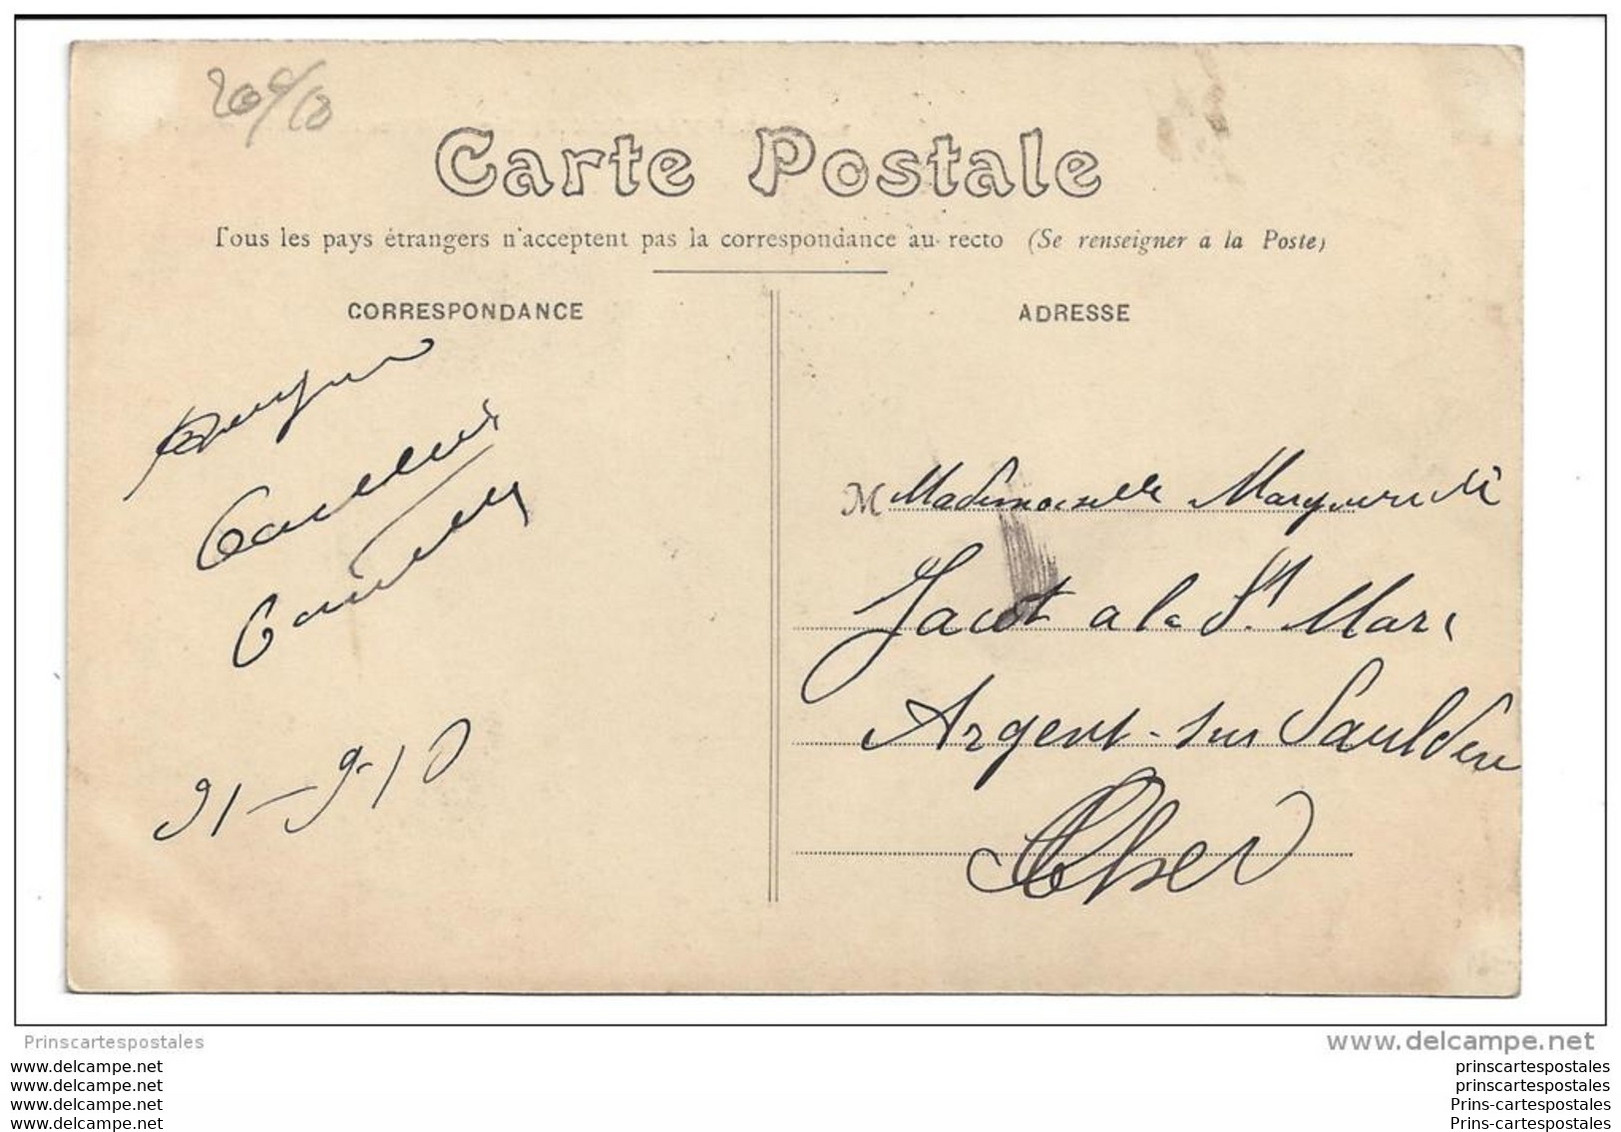 Carte Postale
Tous les pays étrangers n'acceptent pas la correspondance au recto (Se renseigner a la Poste)
CORRESPONDANCE
ADRESSE
21-9-10
M Mademoiselle Marguerite
Jacot a la St. Marc
Argent-sur Sauldre
Cher
Prinscartespostales
www.delcampe.net
www.delcampe.net
www.delcampe.net
www.delcampe.net
www.delcampe.net
prinscartespostales
prinscartespostales
Prins-cartespostales
Prins-cartespostales